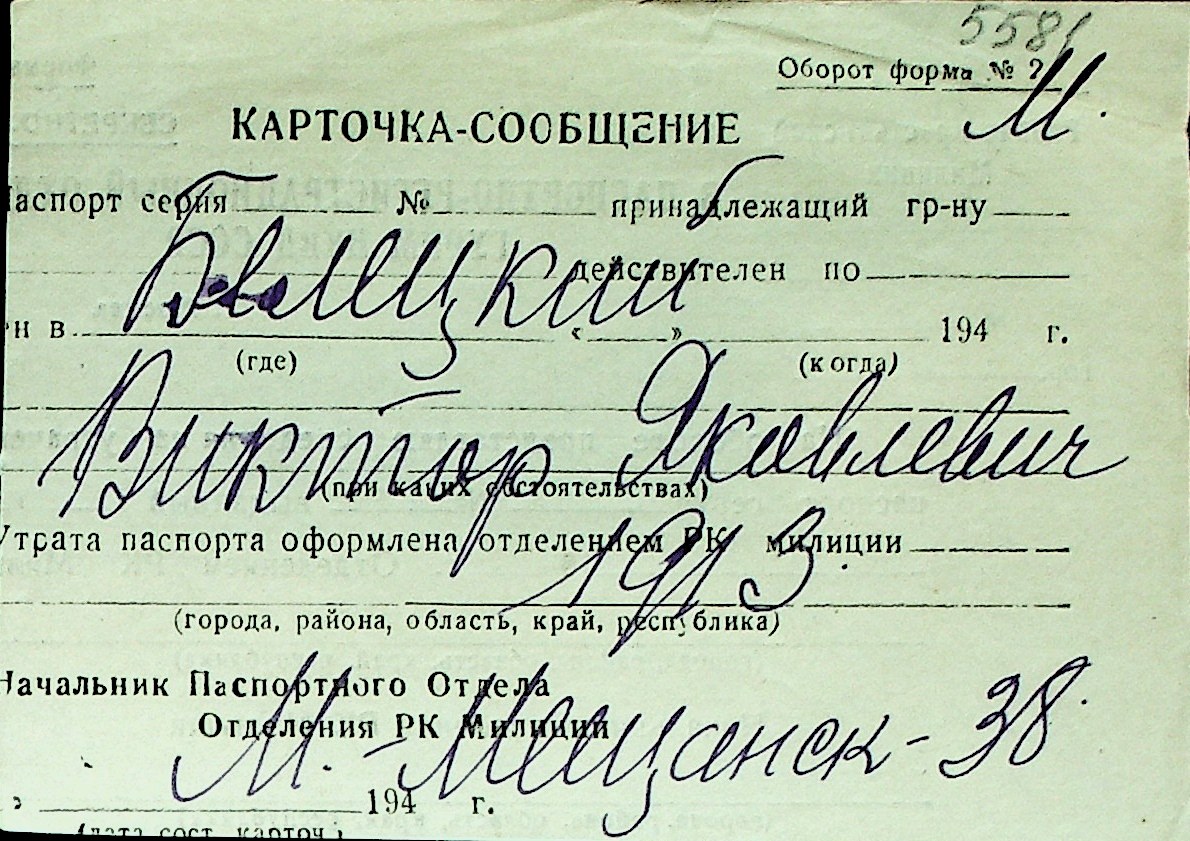 5581
Оборот форма № 2
М.
КАРТОЧКА-СООБЩЕНИЕ
Паспорт серия № принадлежащий гр-ну
Белицкий
действителен по
н в « » 194 г.
(где) (когда)
Виктор Яковлевич
(при каких обстоятельствах)
Утрата паспорта оформлена отделением РК милиции
1913.
(города, района, область, край, республика)
Начальник Паспортного Отдела
Отделения РК Милиции
М.-Мещанск-38.
194 г.
(дата сост. карточ.)